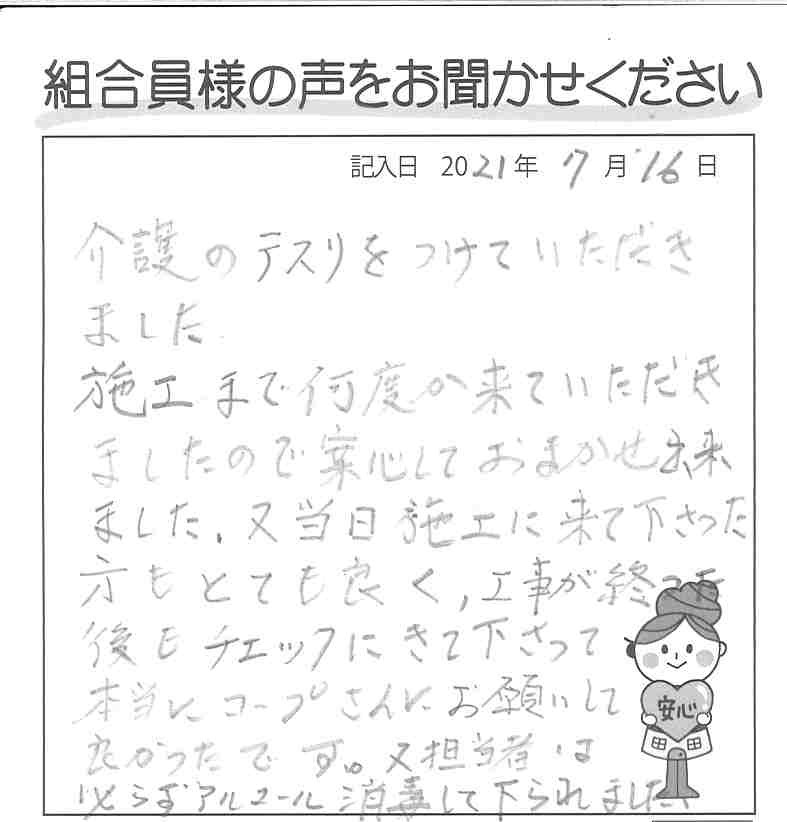 組合員様の声をお聞かせください
記入日 2021年 7月 16日
介護のテスリをつけていただき
ました.
施工まで何度か来ていただき
ましたので案心しておまかせ出来
ました. 又当日施工に来て下さった
方もとても良く, 工事が終った
後もチェックにきて下さって
本当にコープさんにお願いして
安心
良かったです。又担当者は
必らずアルコール消毒して下られました、